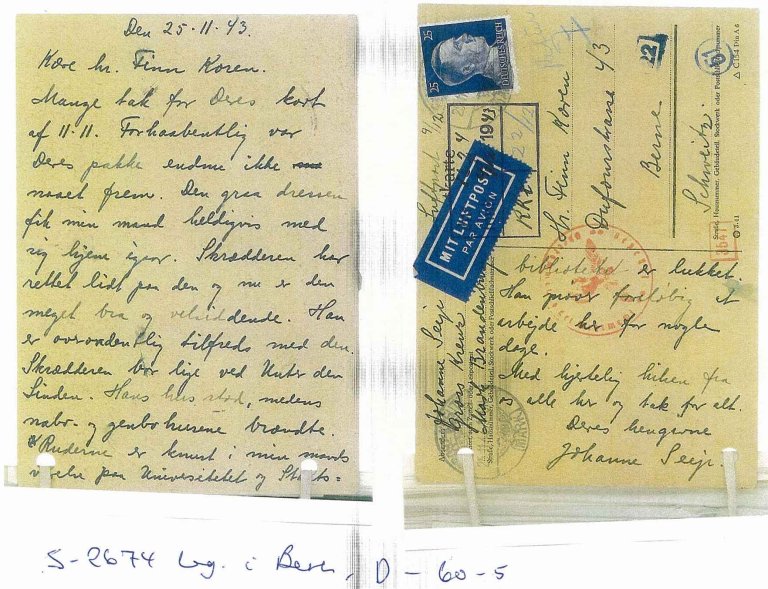 Den 25-11-43.
Kære hr. Finn Koren.
Mange tak for Deres kort
af 11-11. Forhaabentlig var
Deres pakke endnu ikke
naaet frem. Den graa dressen
fik min mand heldigvis med
sig hjem igaar. Skrædderen har
rettet lidt paa den og nu er den
meget bra og velsiddende. Han
er overordentlig tilfreds med den.
Skrædderen bor lige ved Unter den
Linden. Hans hus stod, medens
nabo- og genbohusene brændte.
Ruderne er knust i min mands
værelse paa Universitetet og Stats=
25
25
DEUTSCHES REICH
22
61
△ C 154 Din A 6
Luftpost
1943
MIT LUFTPOST
PAR AVION
Hr. Finn Koren
Dufourstrasse 43
Berne
Schweitz
Straße, Hausnummer, Gebäudeteil, Stockwerk oder Postschließfachnummer
3-41
Johanne Seip
Gross Kreuz
Mark Brandenburg
biblioteket er lukket.
Han prøver foreløbig at
arbejde her for nogle
dage.
Med hjertelig hilsen fra
alle her og tak for alt.
Deres hengivne
Johanne Seip.
S-2674 Leg. i Bern, D-60-5